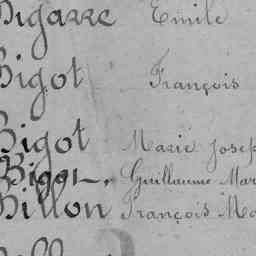 Bigarre Emile
Bigot François
Bigot Marie Josep
Bigot, Guillaume Mar
Billon François Ma